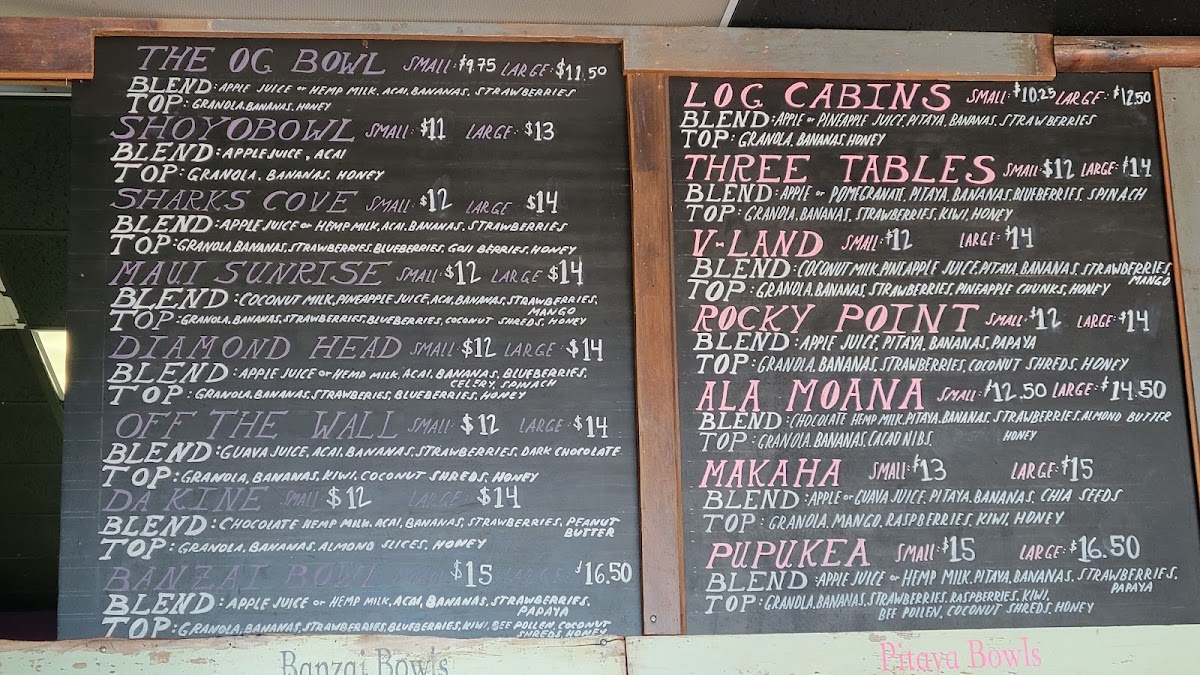 THE OG BOWL SMALL: $9.75 LARGE: $11.50
BLEND: APPLE JUICE or HEMP MILK, ACAI, BANANAS, STRAWBERRIES
TOP: GRANOLA, BANANAS, HONEY
SHOYOBOWL SMALL: $11 LARGE: $13
BLEND: APPLE JUICE, ACAI
TOP: GRANOLA, BANANAS, HONEY
SHARKS COVE SMALL: $12 LARGE $14
BLEND: APPLE JUICE or HEMP MILK, ACAI, BANANAS, STRAWBERRIES
TOP: GRANOLA, BANANAS, STRAWBERRIES, BLUEBERRIES, GOJI BERRIES, HONEY
MAUI SUNRISE SMALL: $12 LARGE $14
BLEND: COCONUT MILK, PINEAPPLE JUICE, ACAI, BANANAS, STRAWBERRIES,
MANGO
TOP: GRANOLA, BANANAS, STRAWBERRIES, BLUEBERRIES, COCONUT SHREDS, HONEY
DIAMOND HEAD SMALL: $12 LARGE: $14
BLEND: APPLE JUICE or HEMP MILK, ACAI, BANANAS, BLUEBERRIES,
CELERY, SPINACH
TOP: GRANOLA, BANANAS, STRAWBERIES, BLUEBERRIES, HONEY
OFF THE WALL SMALL: $12 LARGE: $14
BLEND: GUAVA JUICE, ACAI, BANANAS, STRAWBERRIES, DARK CHOCOLATE
TOP: GRANOLA, BANANAS, KIWI, COCONUT SHREDS, HONEY
DA KINE SMALL $12 LARGE: $14
BLEND: CHOCOLATE HEMP MILK, ACAI, BANANAS, STRAWBERRIES, PEANUT
BUTTER
TOP: GRANOLA, BANANAS, ALMOND SLICES, HONEY
BANZAI BOWL $15 LARGE $16.50
BLEND: APPLE JUICE or HEMP MILK, ACAI, BANANAS, STRAWBERRIES,
PAPAYA
TOP: GRANOLA, BANANAS, STRAWBERRIES, BLUEBERRIES, KIWI, BEE POLLEN, COCONUT
SHREDS, HONEY
Banzai Bowls
LOG CABINS SMALL: $10.25 LARGE: $12.50
BLEND: APPLE or PINEAPPLE JUICE, PITAYA, BANANAS, STRAWBERRIES
TOP: GRANOLA, BANANAS, HONEY
THREE TABLES SMALL: $12 LARGE: $14
BLEND: APPLE or POMEGRANATE, PITAYA, BANANAS, BLUEBERRIES, SPINACH
TOP: GRANOLA, BANANAS, STRAWBERRIES, KIWI, HONEY
V-LAND SMALL: $12 LARGE: $14
BLEND: COCONUT MILK, PINEAPPLE JUICE, PITAYA, BANANAS, STRAWBERRIES,
MANGO
TOP: GRANOLA, BANANAS, STRAWBERRIES, PINEAPPLE CHUNKS, HONEY
ROCKY POINT SMALL: $12 LARGE: $14
BLEND: APPLE JUICE, PITAYA, BANANAS, PAPAYA
TOP: GRANOLA, BANANAS, STRAWBERRIES, COCONUT SHREDS, HONEY
ALA MOANA SMALL: $12.50 LARGE: $14.50
BLEND: CHOCOLATE HEMP MILK, PITAYA, BANANAS, STRAWBERRIES, ALMOND BUTTER
TOP: GRANOLA, BANANAS, CACAO NIBS HONEY
MAKAHA SMALL: $13 LARGE: $15
BLEND: APPLE or GUAVA JUICE, PITAYA, BANANAS, CHIA SEEDS
TOP: GRANOLA, MANGO, RASPBERRIES, KIWI, HONEY
PUPUKEA SMALL: $15 LARGE: $16.50
BLEND: APPLE JUICE or HEMP MILK, PITAYA, BANANAS, STRAWBERRIES,
PAPAYA
TOP: GRANOLA, BANANAS, STRAWBERRIES, RASPBERRIES, KIWI,
BEE POLLEN, COCONUT SHREDS, HONEY
Pitaya Bowls